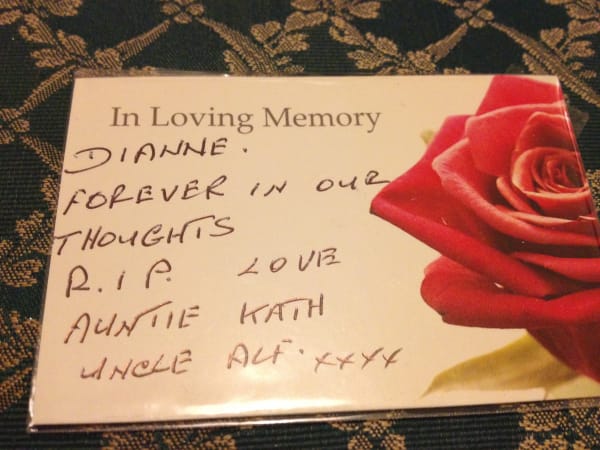 In Loving Memory
DIANNE.
FOREVER IN OUR
THOUGHTS
R.I.P. LOVE
AUNTIE KATH
UNCLE ALF. xxxx